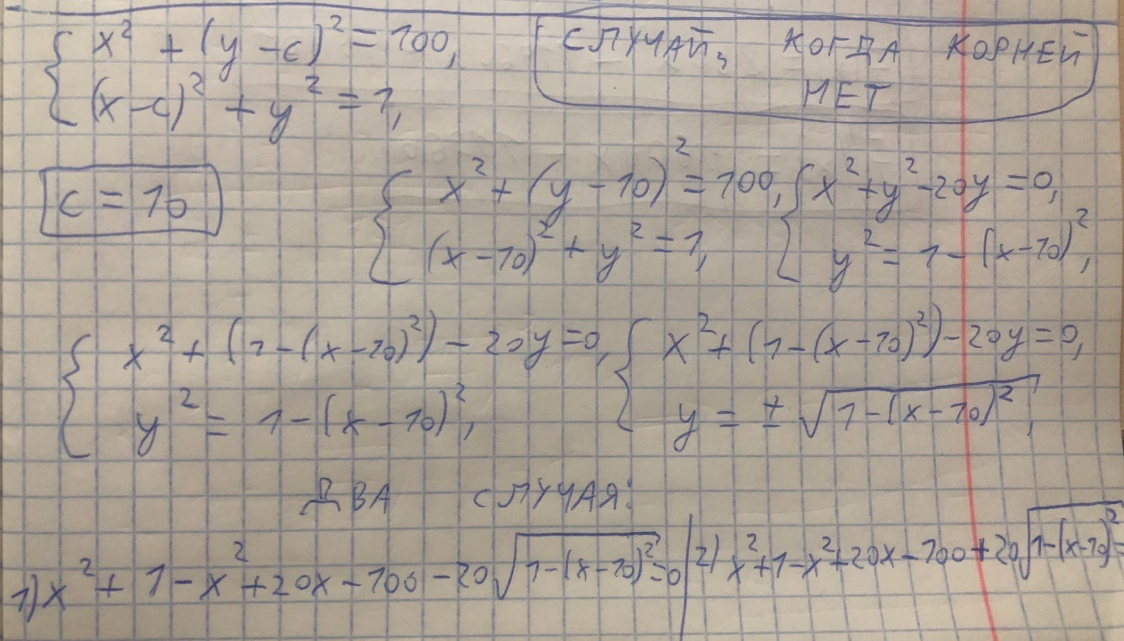 { x² + (y - c)² = 100,
(x-c)² + y² = 1,
СЛУЧАЙ, КОГДА КОРНЕЙ
НЕТ
c = 10
{ x² + (y - 10)² = 100, { x² + y² - 20y = 0,
(x-10)² + y² = 1, y² = 1 - (x-10)²,
{ x² + (1-(x-10)²) - 20y = 0, { x² + (1-(x-10)²) - 20y = 0,
y² = 1-(x-10)², y = ± √(1-(x-10)²),
ДВА СЛУЧАЯ:
1) x² + 1 - x² + 20x - 100 - 20√(1-(x-10)²) = 0 | 2) x² + 1 - x² + 20x - 100 + 20√(1-(x-10)²) =